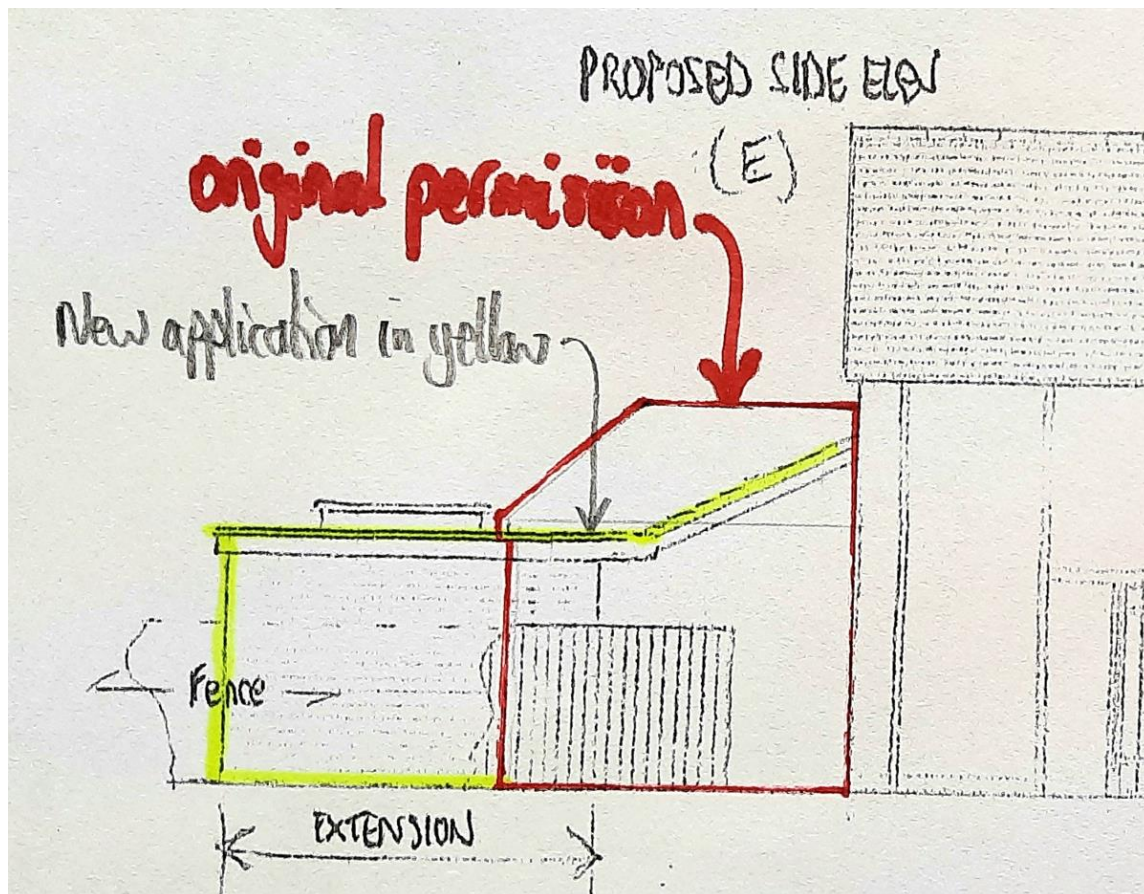 PROPOSED SIDE ELEV
(E)
original permission
New application in yellow
Fence
EXTENSION